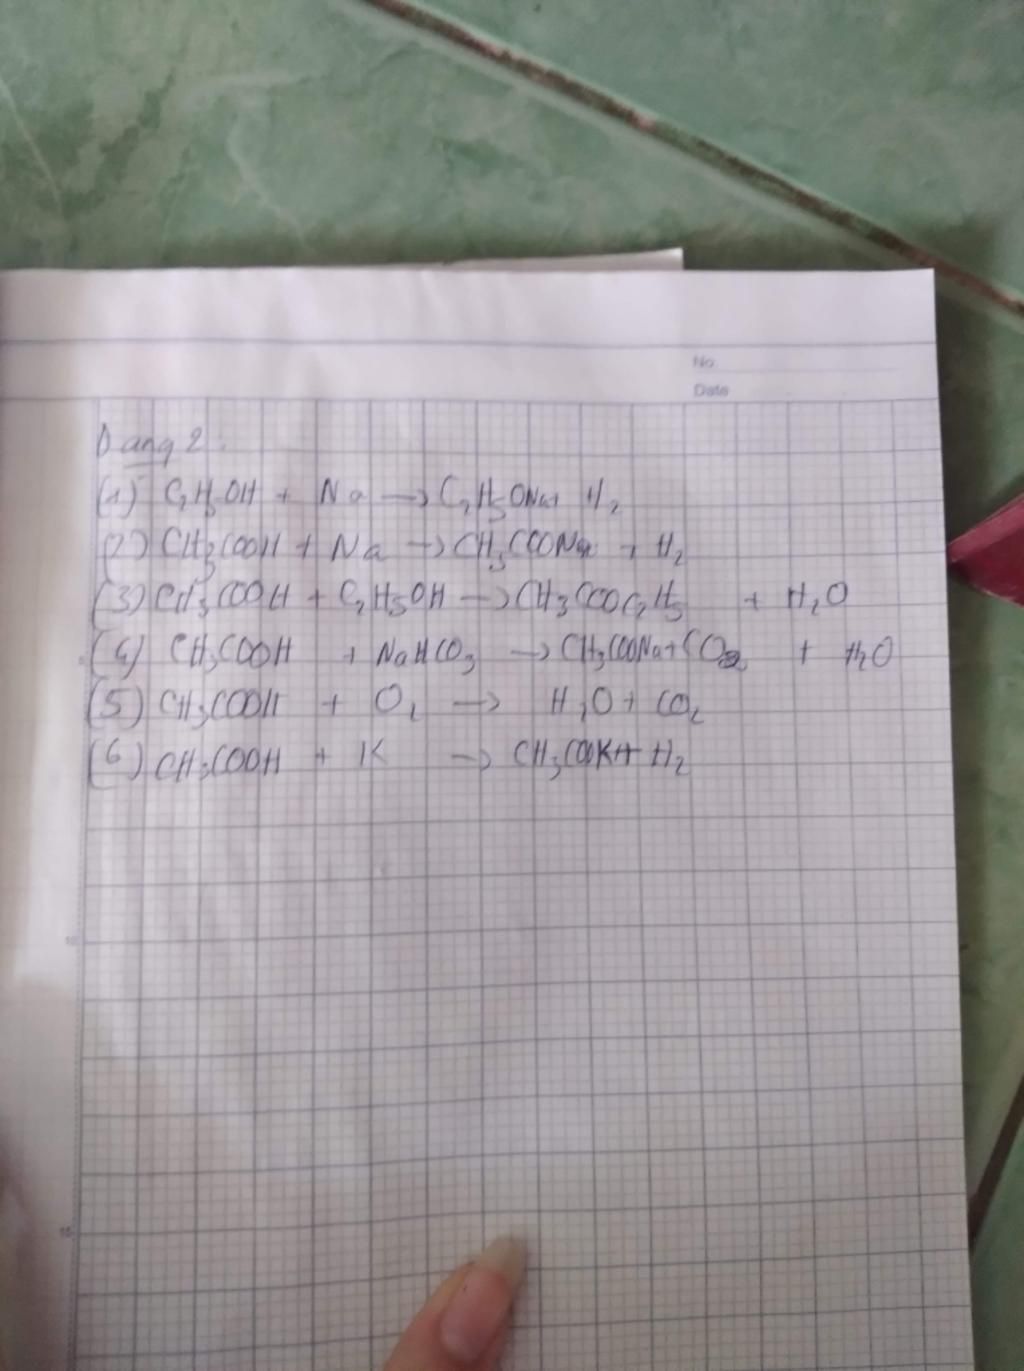 No.
Date
Dạng 2.
(1) C₂H₅OH + Na → C₂H₅ONa+ H₂
(2) CH₃COOH + Na → CH₃COONa + H₂
(3) CH₃COOH + C₂H₅OH → CH₃COOC₂H₅ + H₂O
(4) CH₃COOH + NaHCO₃ → CH₃COONa+ CO₂ + H₂O
(5) CH₃COOH + O₂ → H₂O + CO₂
(6) CH₃COOH + K → CH₃COOK+ H₂
5
10
15